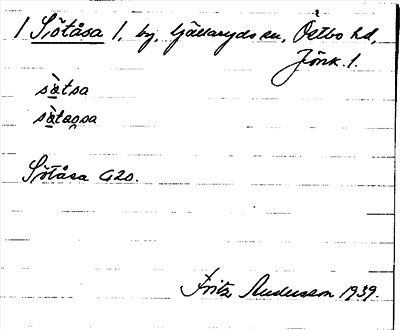 1 Sjötåsa 1, by, Gällaryds sn, Östbo hd,
Jönk. l.
sὰtsa
sὰtasa
Sötåsa G20.
Fritz Andersson 1939.